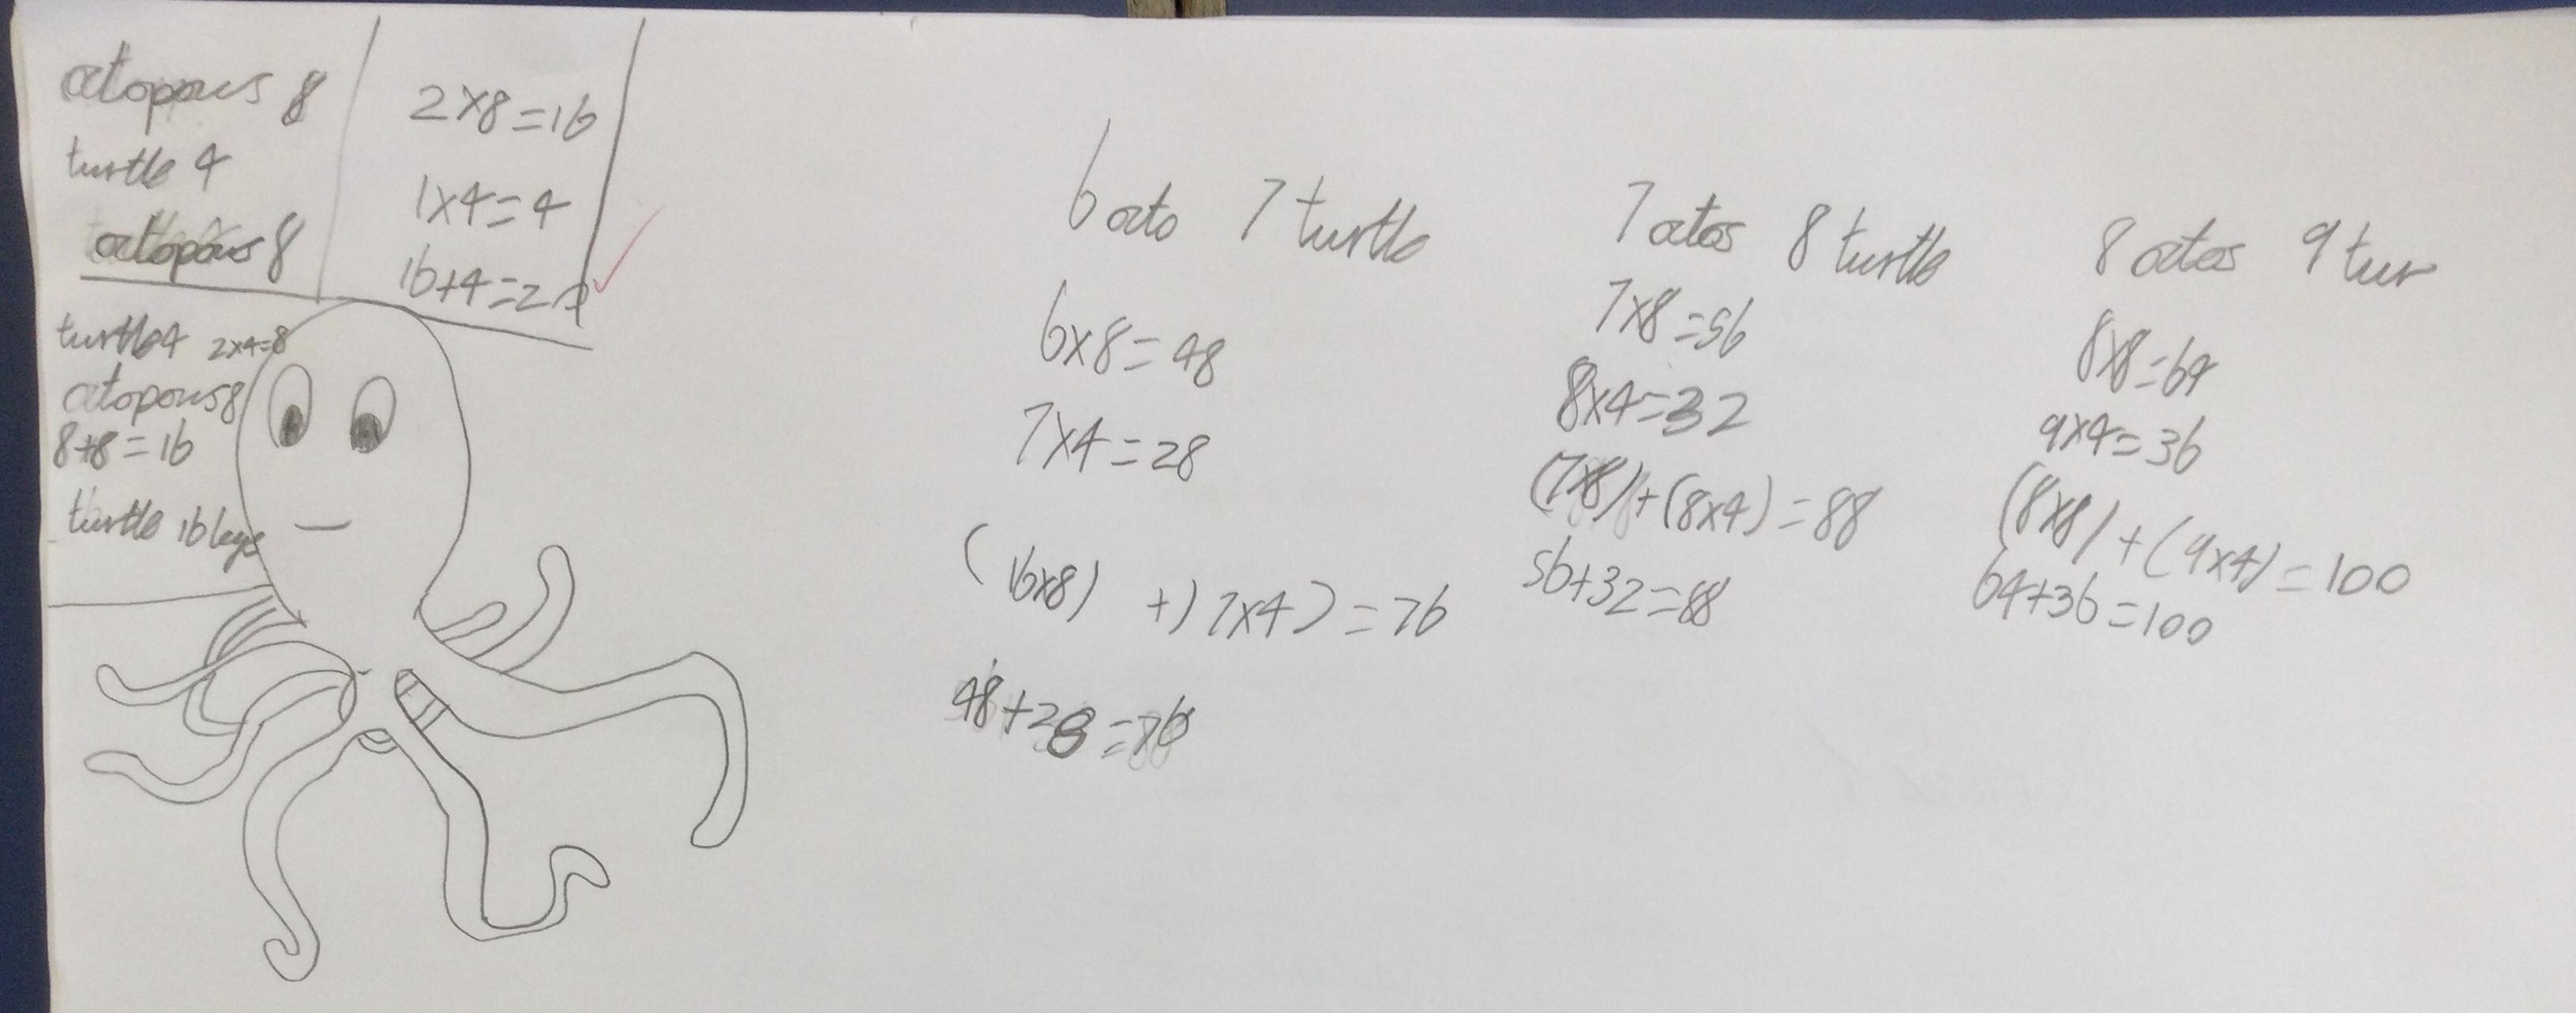 octopous 8
turtle 4
octopous 8
2×8=16
1×4=4
16+4=20
turtle4 2×4=8
octopous8
8+8=16
turtle 16 legs
6 octo 7 turtle
6×8=48
7×4=28
(16×8) +)7×4)=76
48+28=76
7 octos 8 turtle
7×8=56
8×4=32
(7×8)+(8×4)=88
56+32=88
8 octos 9 tur
8×8=64
9×4=36
(8×8)+(9×4)=100
64+36=100